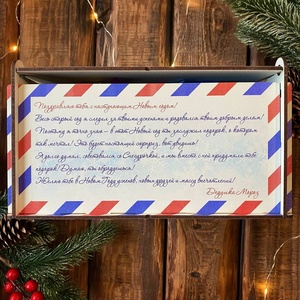 Поздравляю тебя с наступающим Новым годом!
Весь старый год я следил за твоими успехами и радовался твоим добрым делам!
Поэтому я точно знаю – в этом Новый год ты заслужил подарок, о котором
так мечтал! Это будет настоящий сюрприз, вот увидишь!
Я долго думал, советовался со Снегурочкой, и мы вместе с ней придумали тебе
подарок! Думаю, ты обрадуешься!
Желаю тебе в Новом Году успехов, новых друзей и массу впечатлений!
Дедушка Мороз